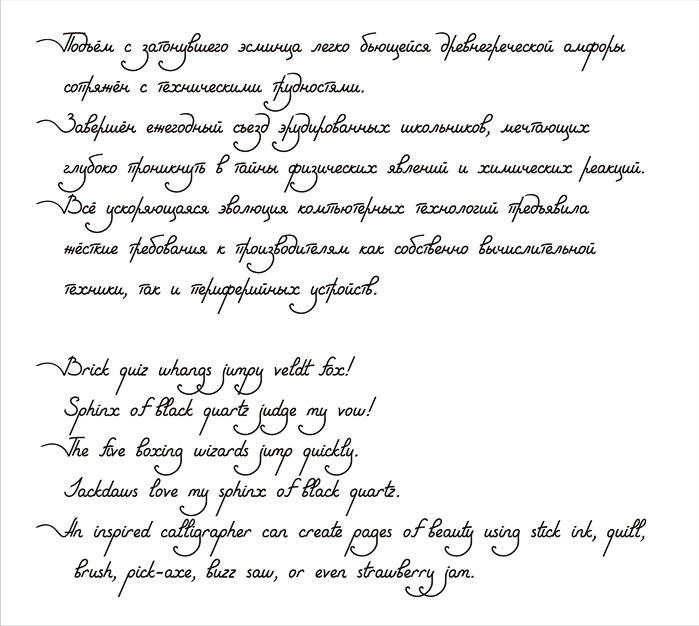 Подъём с затонувшего эсминца легко бьющейся древнегреческой амфоры
сопряжён с техническими трудностями.
Завершён ежегодный съезд эрудированных школьников, мечтающих
глубоко проникнуть в тайны физических явлений и химических реакций.
Всё ускоряющаяся эволюция компьютерных технологий предъявила
жёсткие требования к производителям как собственно вычислительной
техники, так и периферийных устройств.
Brick quiz whangs jumpy veldt fox!
Sphinx of black quartz judge my vow!
The five boxing wizards jump quickly.
Jackdaws love my sphinx of black quartz.
An inspired calligrapher can create pages of beauty using stick ink, quill,
brush, pick-axe, buzz saw, or even strawberry jam.